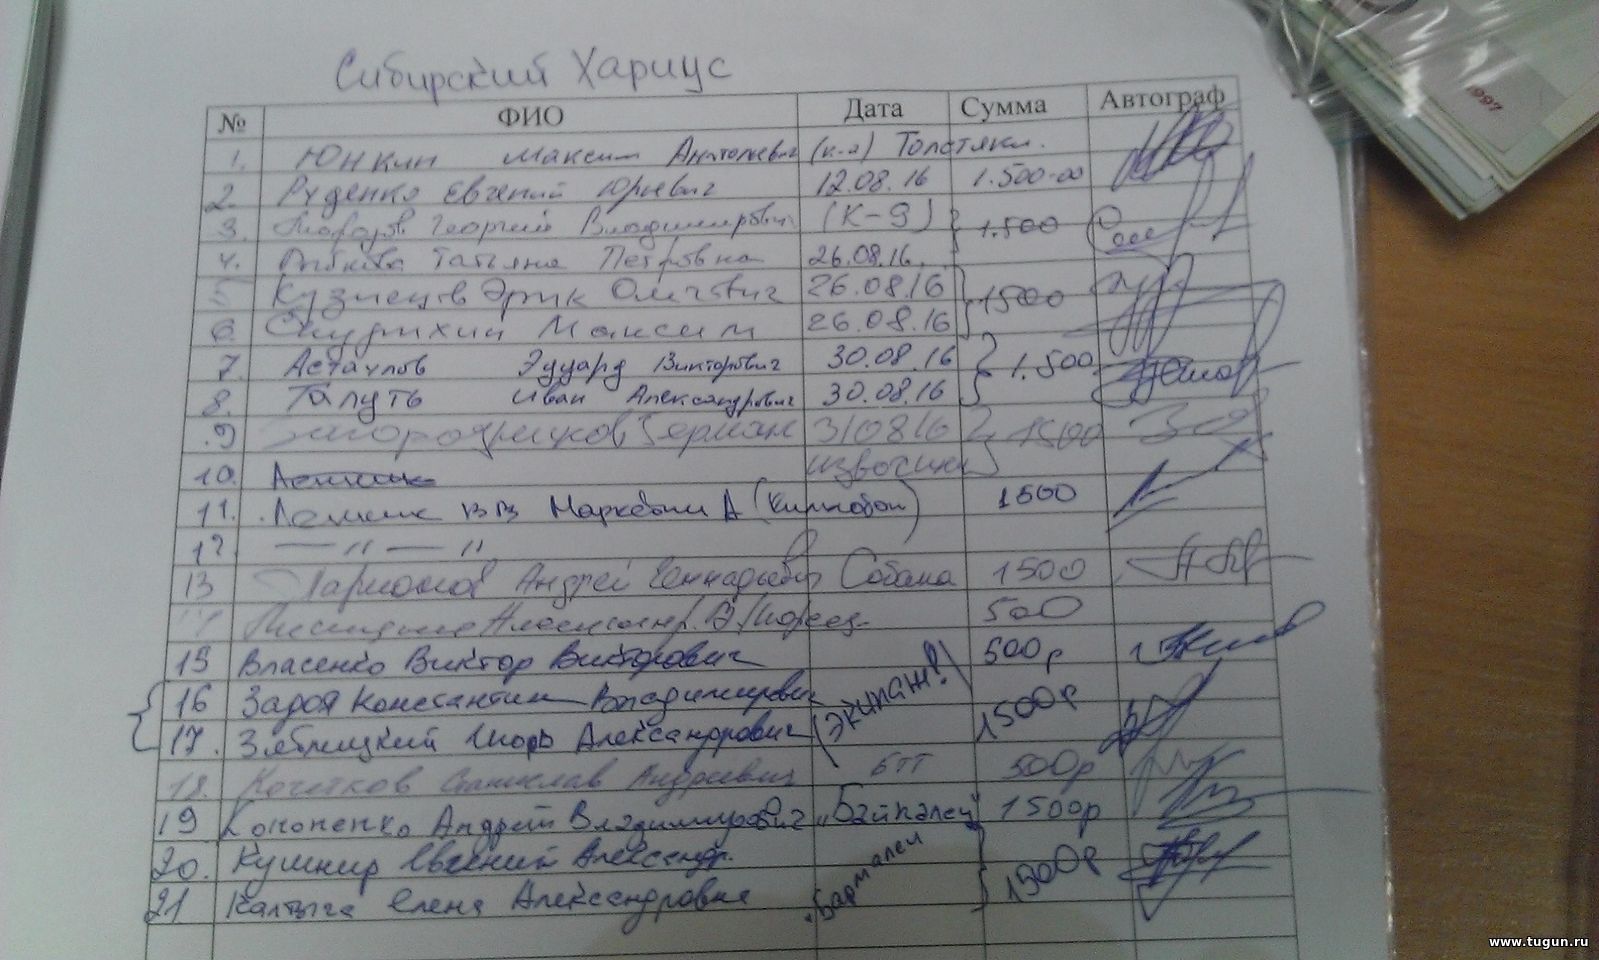 Сибирский Хариус
№ ФИО Дата Сумма Автограф
1. Юнкин Максим Анатольевич (к-а) Толстяки.
2 Руденко Евгений Юрьевич 12.08.16 1.500-00
3. Георгий Владимирович (К-9) 1.500
4. Татьяна Петровна 26.08.16.
5 Кузнецов Эрик Олегович 26.08.16 1500
6 Максим 26.08.16
7. Астахов Эдуард Викторович 30.08.16 1.500
8. Галуть Иван Александрович 30.08.16
.9 Загородников Герман 310816 1500
10.
11. 1500
12 — " — "
13 Андрей Геннадьевич Собака 1500
500
15 Власенко Виктор Викторович 500р
16 Задоя Константин Владимирович (Экипаж!) 1500р
17. Зяблицкий Игорь Александрович
18. Кочетков Станислав Андреевич БТТ 500р
19 Кононенко Андрей Владимирович "Байкалец" 1500р
20. Кушнир Евгений Александр. "Бармалеи 1500р
21 Елена Александровна
1997
www.tugun.ru